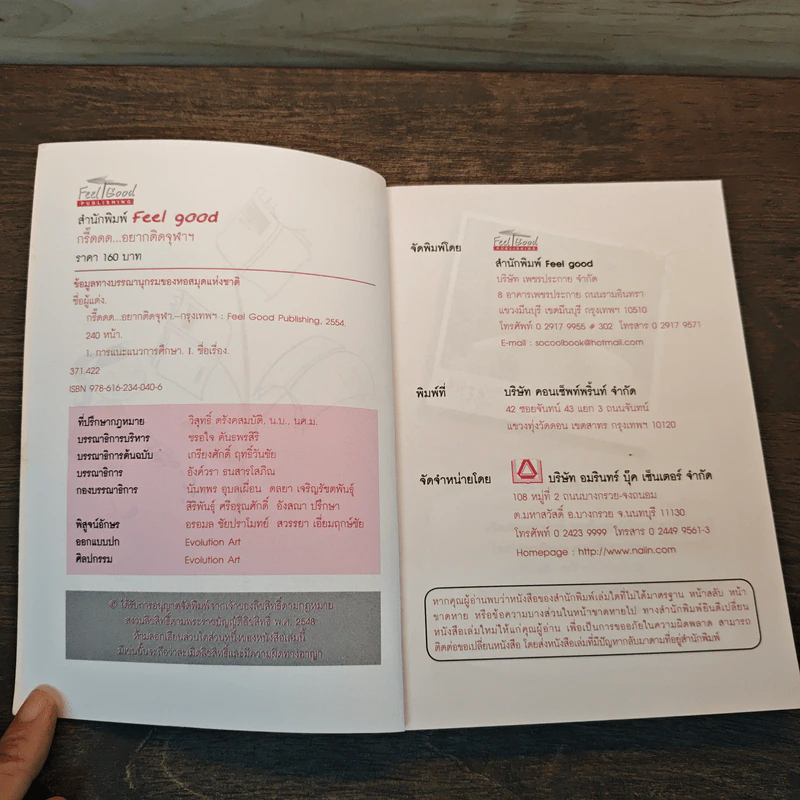 Feel Good
PUBLISHING
สำนักพิมพ์ Feel good
กรี๊ดดด...อยากติดจุฬาฯ
ราคา 160 บาท
ข้อมูลทางบรรณานุกรมของหอสมุดแห่งชาติ
ชื่อผู้แต่ง.
กรี๊ดดด...อยากติดจุฬาฯ.--กรุงเทพฯ : Feel Good Publishing, 2554.
240 หน้า.
1. การแนะแนวการศึกษา. I. ชื่อเรื่อง.
371.422
ISBN 978-616-234-040-6
ที่ปรึกษากฎหมาย วิสุทธิ์ ตรังคสมบัติ, น.บ., นศ.ม.
บรรณาธิการบริหาร ชรอใจ ตันธพรสิริ
บรรณาธิการต้นฉบับ เกรียงศักดิ์ ฤทธิ์วันชัย
บรรณาธิการ อังค์วรา ธนสารโสภิณ
กองบรรณาธิการ นันทพร อุบลเผื่อน ดลยา เจริญรัชตพันธุ์
สิริพันธุ์ ศรีอรุณศักดิ์ อังสณา ปรึกษา
พิสูจน์อักษร อรอมล ชัยปราโมทย์ สวรรยา เอี่ยมฤกษ์ชัย
ออกแบบปก Evolution Art
ศิลปกรรม Evolution Art
© ได้รับการอนุญาตจัดพิมพ์จากเจ้าของลิขสิทธิ์ตามกฎหมาย
สงวนลิขสิทธิ์ตามพระราชบัญญัติลิขสิทธิ์ พ.ศ. 2548
ห้ามลอกเลียนส่วนใดส่วนหนึ่งของหนังสือเล่มนี้
มิเช่นนั้นจะถือว่าละเมิดลิขสิทธิ์และมีความผิดทางอาญา
จัดพิมพ์โดย
Feel Good
PUBLISHING
สำนักพิมพ์ Feel good
บริษัท เพชรประกาย จำกัด
8 อาคารเพชรประกาย ถนนรามอินทรา
แขวงมีนบุรี เขตมีนบุรี กรุงเทพฯ 10510
โทรศัพท์ 0 2917 9955 # 302 โทรสาร 0 2917 9571
E-mail : socoolbook@hotmail.com
พิมพ์ที่ บริษัท คอนเซ็พท์พริ้นท์ จำกัด
42 ซอยจันทน์ 43 แยก 3 ถนนจันทน์
แขวงทุ่งวัดดอน เขตสาทร กรุงเทพฯ 10120
จัดจำหน่ายโดย บริษัท อมรินทร์ บุ๊ค เซ็นเตอร์ จำกัด
108 หมู่ที่ 2 ถนนบางกรวย-จงถนอม
ต.มหาสวัสดิ์ อ.บางกรวย จ.นนทบุรี 11130
โทรศัพท์ 0 2423 9999 โทรสาร 0 2449 9561-3
Homepage : http://www.naiin.com
หากคุณผู้อ่านพบว่าหนังสือของสำนักพิมพ์เล่มใดที่ไม่ได้มาตรฐาน หน้าสลับ หน้า
ขาดหาย หรือข้อความบางส่วนในหน้าขาดหายไป ทางสำนักพิมพ์ยินดีเปลี่ยน
หนังสือเล่มใหม่ให้แก่คุณผู้อ่าน เพื่อเป็นการขออภัยในความผิดพลาด สามารถ
ติดต่อขอเปลี่ยนหนังสือ โดยส่งหนังสือเล่มที่มีปัญหากลับมาตามที่อยู่สำนักพิมพ์